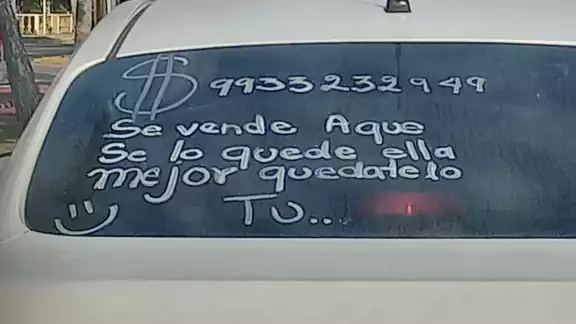 $ 9933232949
Se vende Aque
Se lo quede ella
mejor quedatelo
Tu...